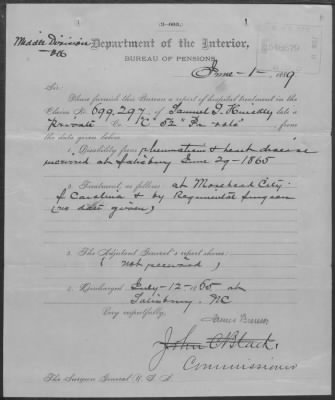 (3—083.)
Middle Division
Department of the Interior,
BUREAU OF PENSIONS,
June 1 1889
Sir:
Please furnish this Bureau a report of hospital treatment in the
Claim No. 699,297, of Samuel T. late a
Private Co "C" 52" Pa vols from
the date given below.
1. Disability from rheumatism & heart disease
incurred at Salisbury June 29-1865
2. Treatment, as follows at Morehead City
Carolina & by Regimental Surgeon
(no date given)
3. The Adjutant General's report shows:
(not received)
4. Discharged July-12-1865 at
Salisbury NC
Very respectfully,
John C Black
Commissioner
The Surgeon General U. S. A.